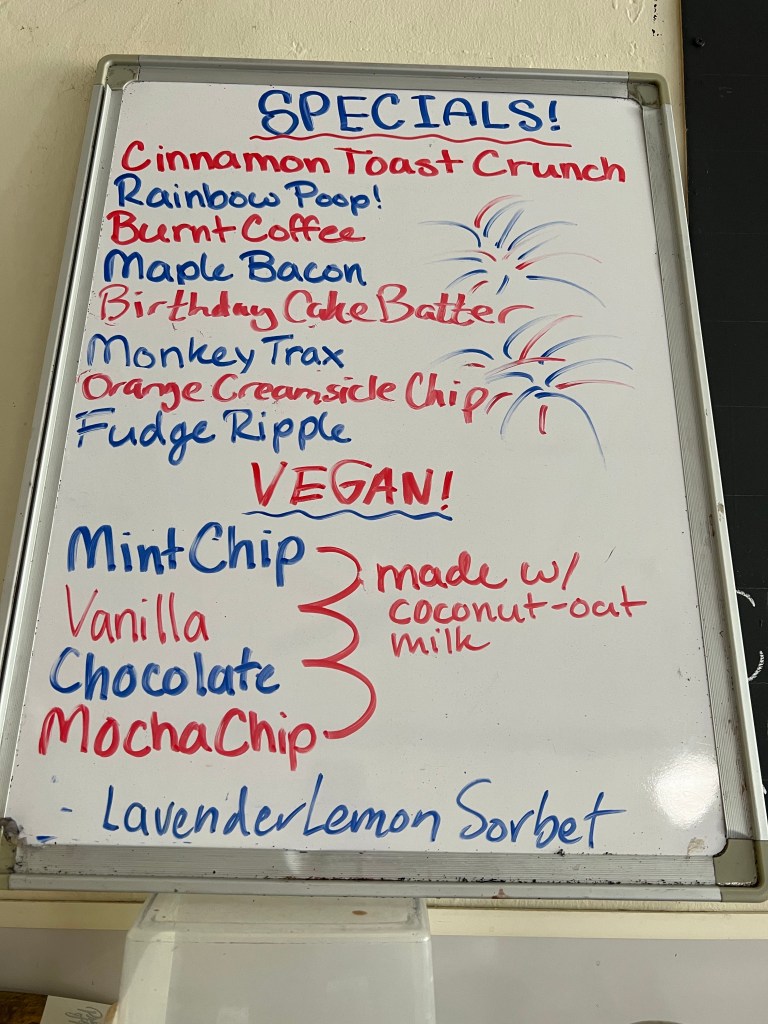 SPECIALS!
Cinnamon Toast Crunch
Rainbow Poop!
Burnt Coffee
Maple Bacon
Birthday Cake Batter
Monkey Trax
Orange Creamsicle Chip
Fudge Ripple
VEGAN!
Mint Chip
Vanilla
Chocolate
Mocha Chip
made w/
coconut-oat
milk
- Lavender Lemon Sorbet